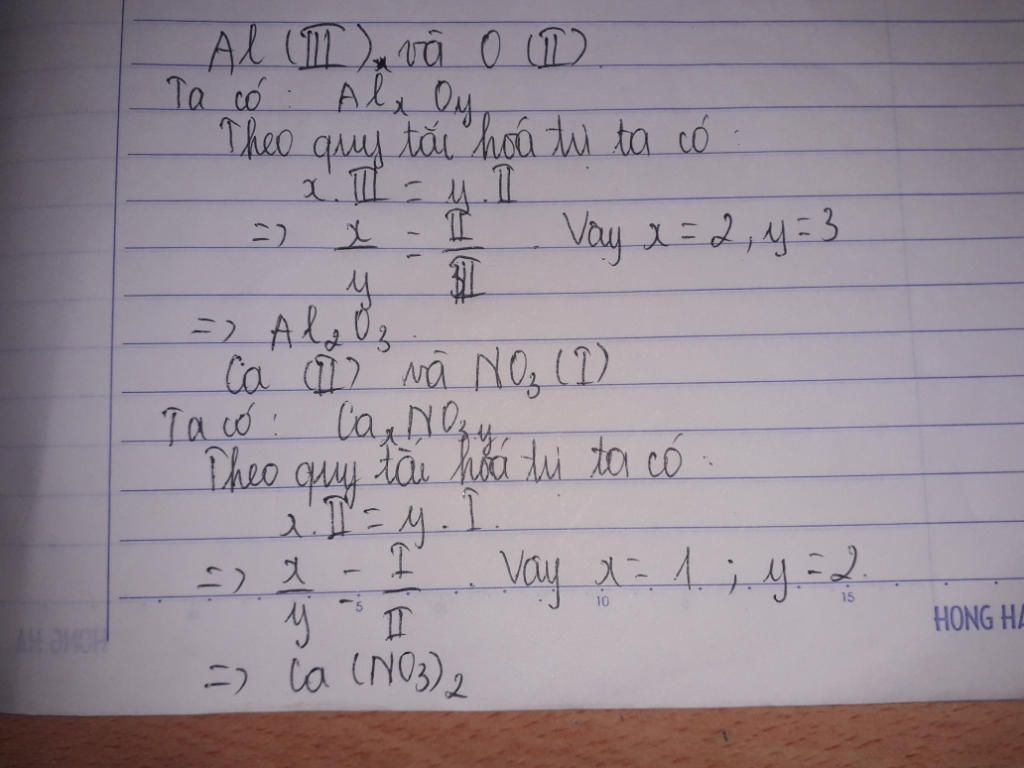 Al (III) và O (II).
Ta có: AlₓOy
Theo quy tắc hoá trị ta có:
x.III = y.II
=> x/y = II/III. Vay x = 2, y = 3
=> Al₂O₃.
Ca (II) và NO₃ (I)
Ta có: CaₓNO₃y
Theo quy tắc hoá trị ta có:
x.II = y.I.
=> x/y = I/II. Vay x = 1; y = 2.
5 10 15
HONG HA
=> Ca(NO₃)₂